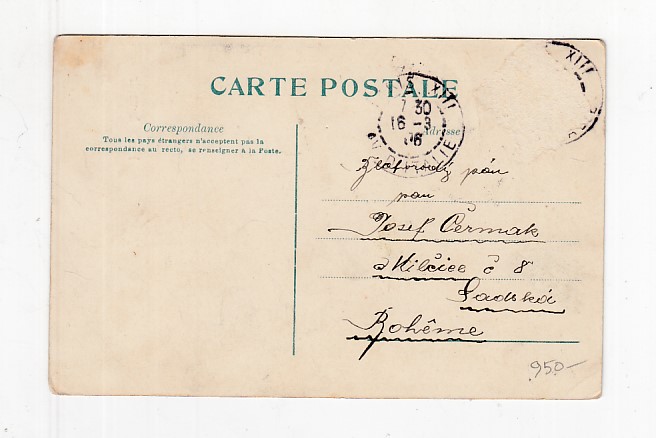 CARTE POSTALE
Correspondance
Tous les pays étrangers n'acceptent pas la
correspondance au recto, se renseigner à la Poste.
Adresse
XIII
7 30
16 -3
06
D'ITALIE
XIII
pán
pan
Josef Čermak
Milčice č 8
Sadská
Bohême
950-